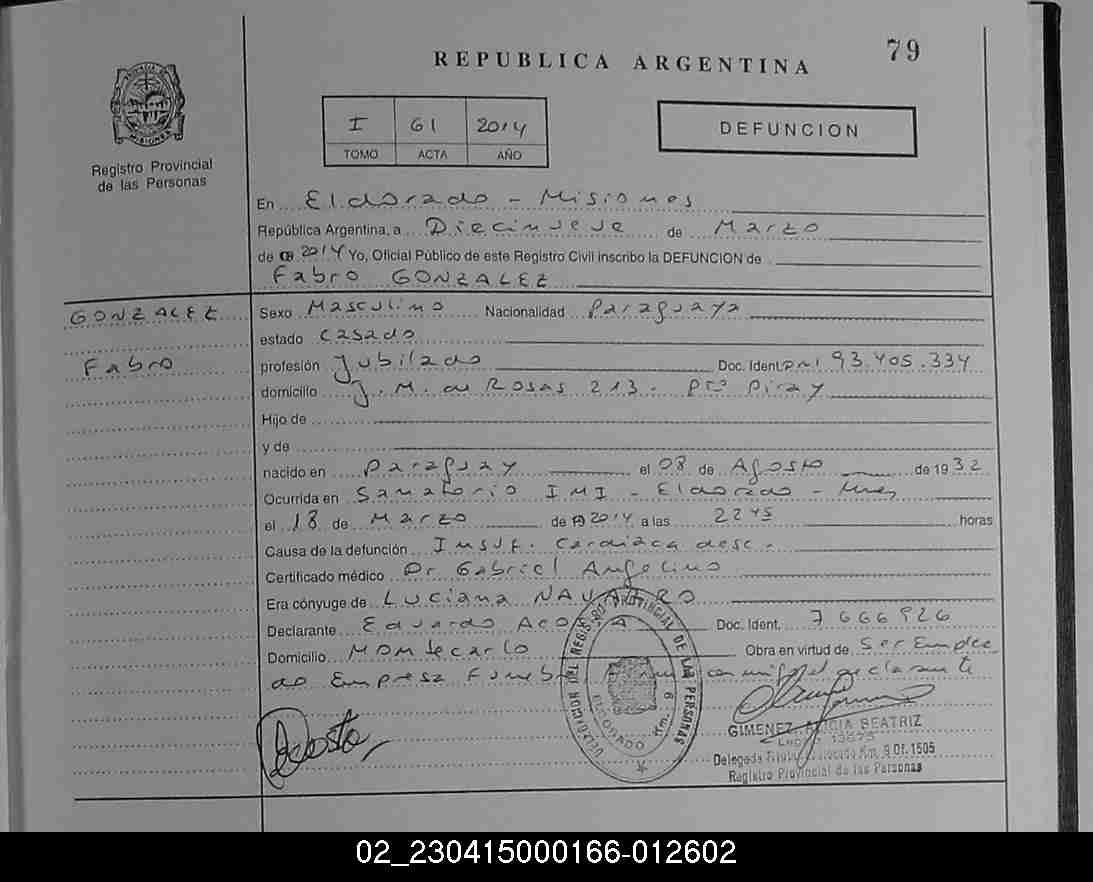 REPUBLICA ARGENTINA
79
PROVINCIA DE
MISIONES
Registro Provincial
de las Personas
I 61 2014
TOMO ACTA AÑO
DEFUNCION
En Eldorado - Misiones
República Argentina, a Diecinueve de Marzo
de 2014 Yo, Oficial Público de este Registro Civil inscribo la DEFUNCION de
Fabro GONZALEZ
GONZALEZ
Fabro
Sexo Masculino Nacionalidad Paraguaya
estado Casado
profesión Jubilado Doc. Ident. DNI 93.405.334
domicilio J. M. de Rosas 213 - Pto Piray
Hijo de
y de
nacido en Paraguay el 08 de Agosto de 1932
Ocurrida en Sanatorio IMI - Eldorado - Mnes
el 18 de Marzo de 2014 a las 22 45 horas
Causa de la defunción Insuf. Cardiaca desc.
Certificado médico Dr. Gabriel Angelino
Era cónyuge de Luciana NAVARRO
Declarante Eduardo ACOSTA Doc. Ident. 7666926
Domicilio Montecarlo Obra en virtud de Ser Emplea
do Empresa Funebre conmigo el declarante
Acosta
DELEGACION DEL REGISTRO PROVINCIAL DE LAS PERSONAS
ELDORADO Km. 9
GIMENEZ, ALICIA BEATRIZ
Delegada Titular Eldorado Km. 9 Of. 1505
Registro Provincial de las Personas
02_230415000166-012602